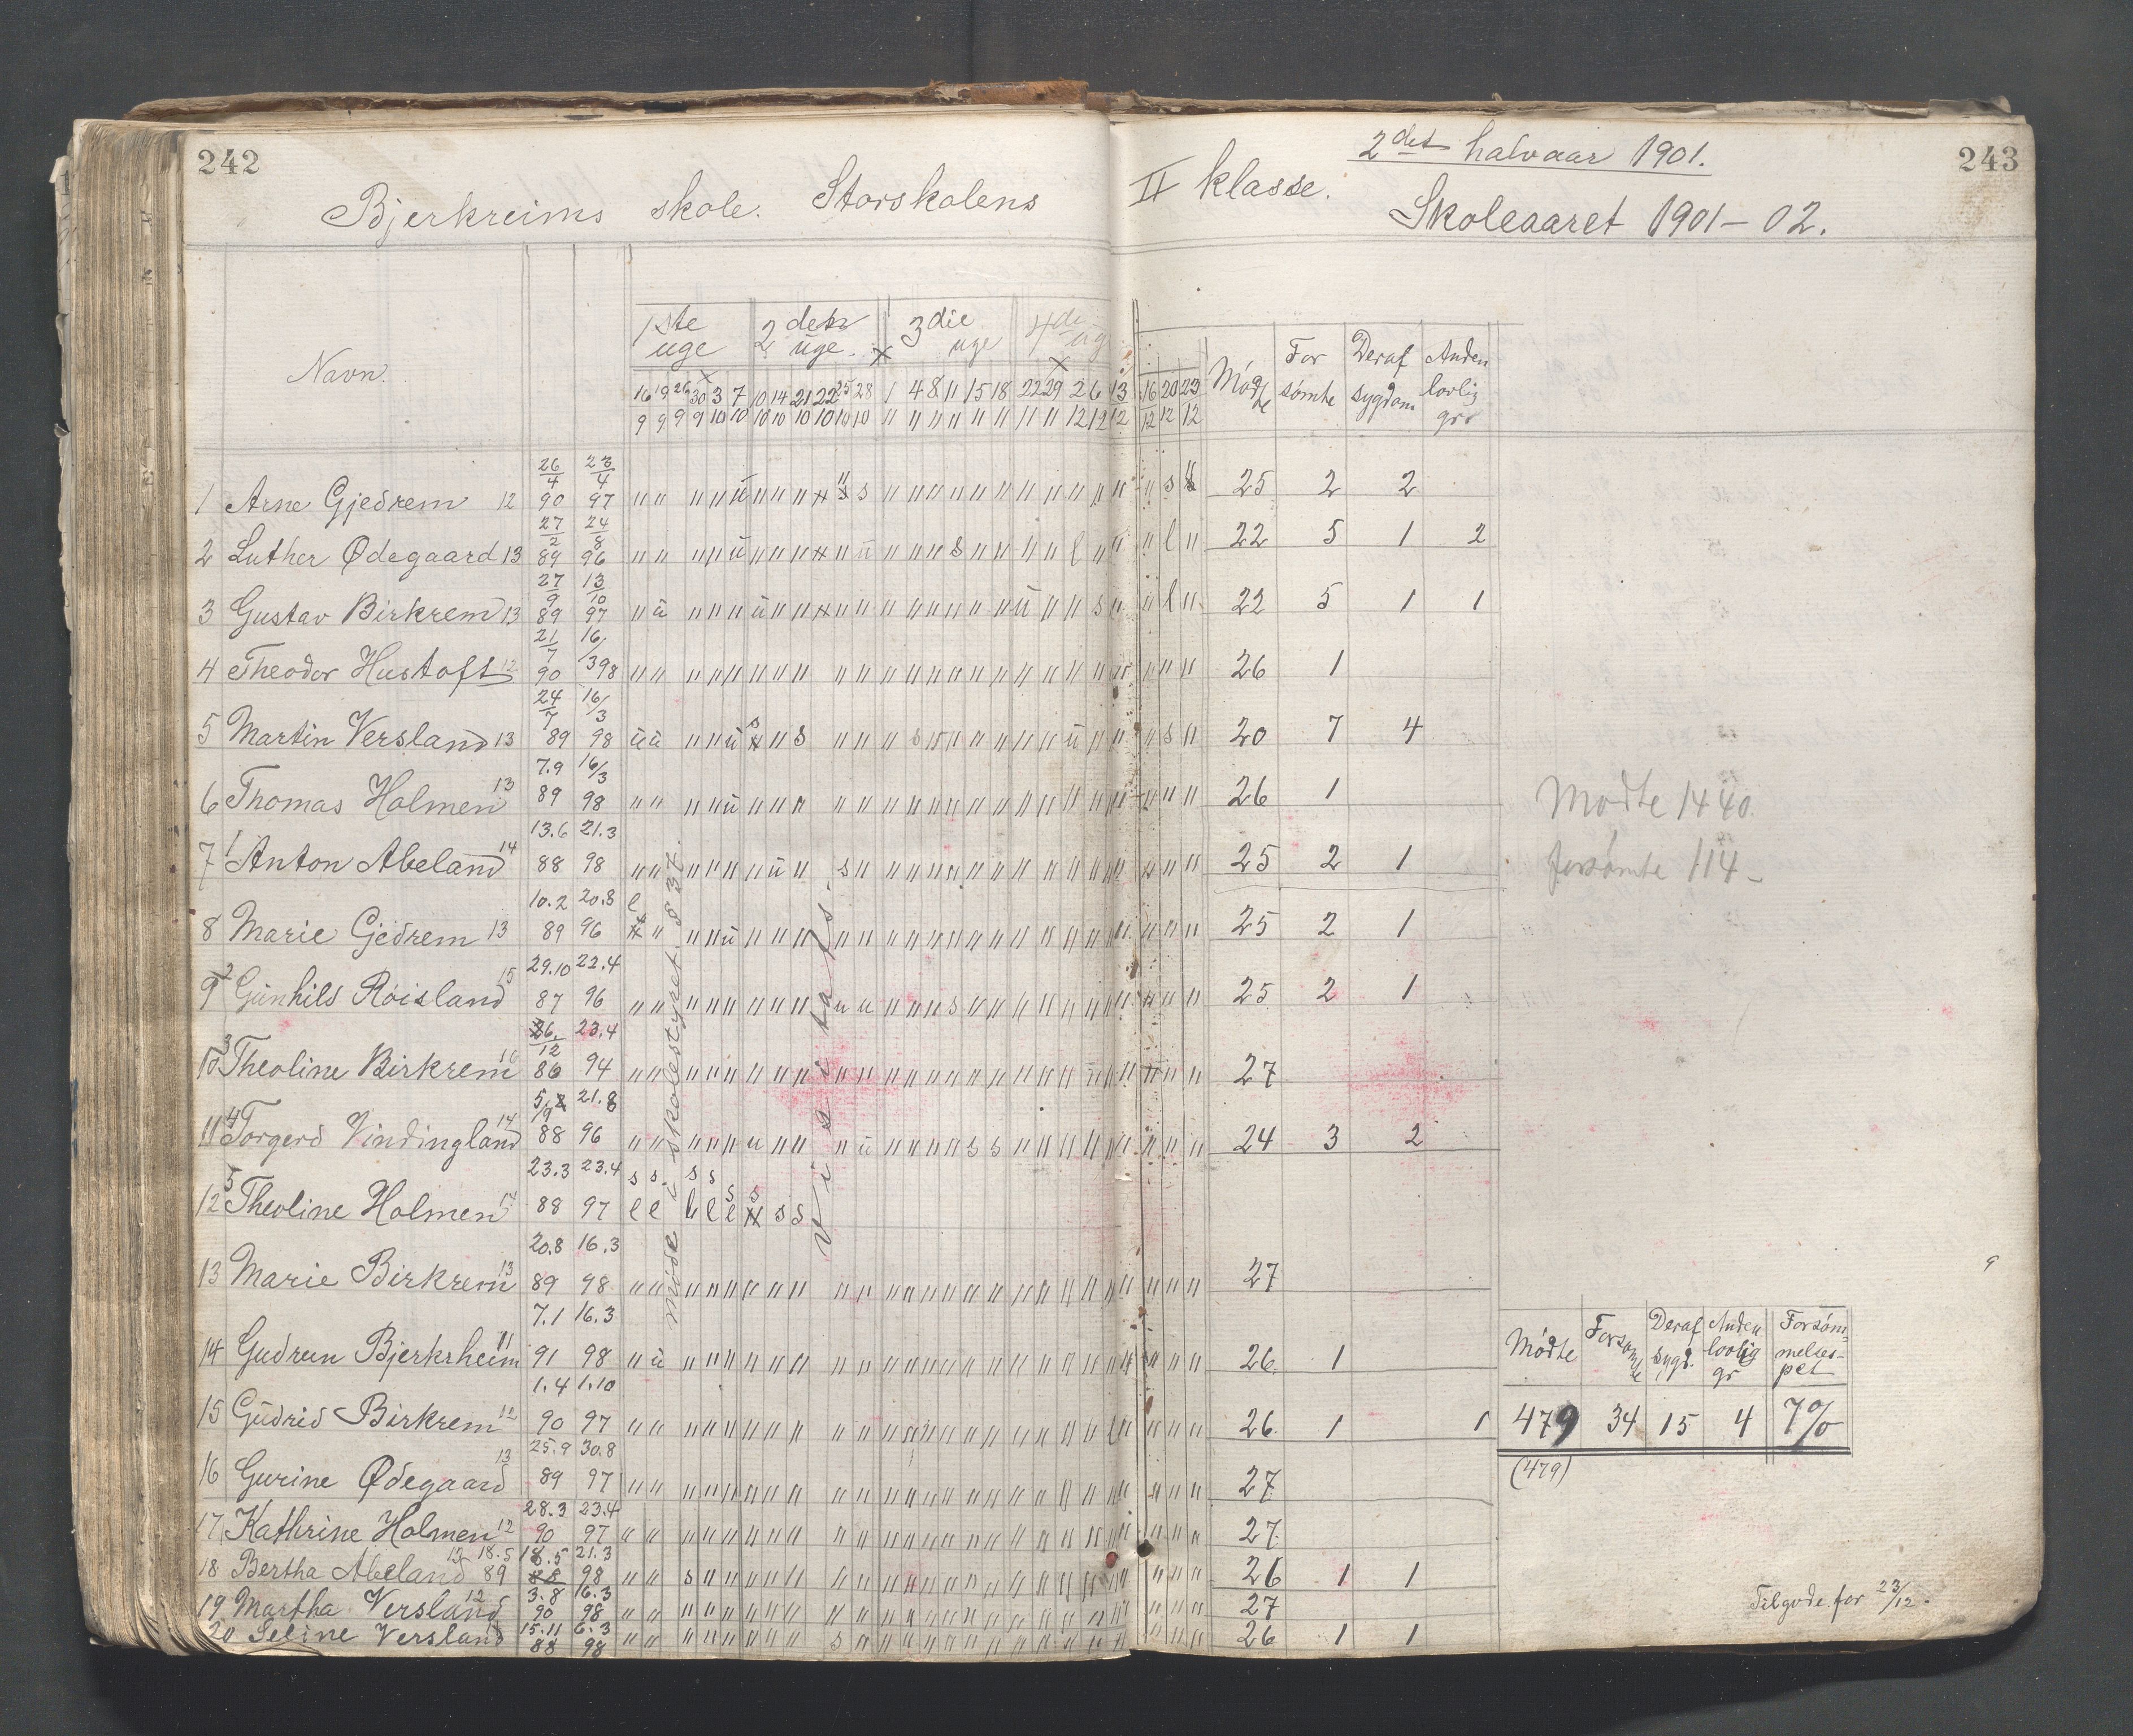 242
Bjerkreims skole. Storskolens
II klasse.
2det halvaar 1901.
243
Skoleaaret 1901–02.
Navn.
1ste uge
2den uge.
3die uge
4de ug
Mødte
For sømte
Deraf sygdom
Anden lovlig gr.
16 19 26 30 3 7 10 14 21 22 25 28 1 4 8 11 15 18 22 29 2 6 13 16 20 23
9 9 9 9 10 10 10 10 10 10 10 10 11 11 11 11 11 11 11 11 12 12 12 12 12 12
1 Arne Gjedrem 12 26/4 90 23/4 97 25 2 2
2 Luther Ødegaard 13 27/2 89 24/8 96 22 5 1 2
3 Gustav Birkrem 13 27/9 89 13/10 97 22 5 1 1
4 Theodor Hustoft 12 21/7 90 16/3 98 26 1
5 Martin Versland 13 24/7 89 16/3 98 20 7 4
6 Thomas Holmen 13 7.9 89 16/3 98 26 1
7 Anton Abeland 14 13.6 88 21.3 98 25 2 1
8 Marie Gjedrem 13 10.2 89 20.8 96 25 2 1
9 Gunhild Røisland 15 29.10 87 22.4 96 25 2 1
10 Theoline Birkrem 86 23.4 94 27
11 Torgerd Vindingland 14 88 21.8 96 24 3 2
12 Theoline Holmen 23.3 88 23.4 97
13 Marie Birkrem 13 20.8 89 16.3 98 27
14 Gudrun Bjerkrheim 11 7.1 91 16.3 98 26 1
15 Gudrid Birkrem 12 1.4 90 1.10 97 26 1 1
16 Gurine Ødegaard 13 25.9 89 30.8 97 27
17 Kathrine Holmen 12 28.3 90 23.4 97 27
18 Bertha Abeland 18.5 89 18.5 21.3 98 26 1 1
19 Martha Versland 12 3.8 90 16.3 98 27
20 Seline Versland 15.11 88 6.3 98 26 1 1
møde i skolestyret.
Visitats.
Mødte 1440.
forsømte 114–
Mødte Forsømte Deraf sygd. Anden lovlig gr Forsømmelses-pct
479 34 15 4 7%
(479)
Tilgode for 23/12.